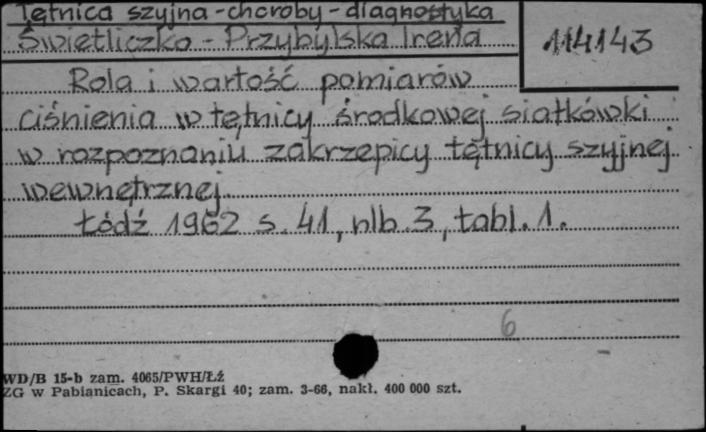 Tętnica szyjna - choroby - diagnostyka
Świetliczko - Przybylska Irena
114143
Rola i wartość pomiarów
ciśnienia w tętnicy środkowej siatkówki
w rozpoznaniu zakrzepicy tętnicy szyjnej
wewnętrznej
Łódź 1962 s. 41, nlb. 3, tabl. 1.
6
WD/B 15-b zam. 4065/PWH/Łź
ZG w Pabianicach, P. Skargi 40; zam. 3-66, nakł. 400 000 szt.